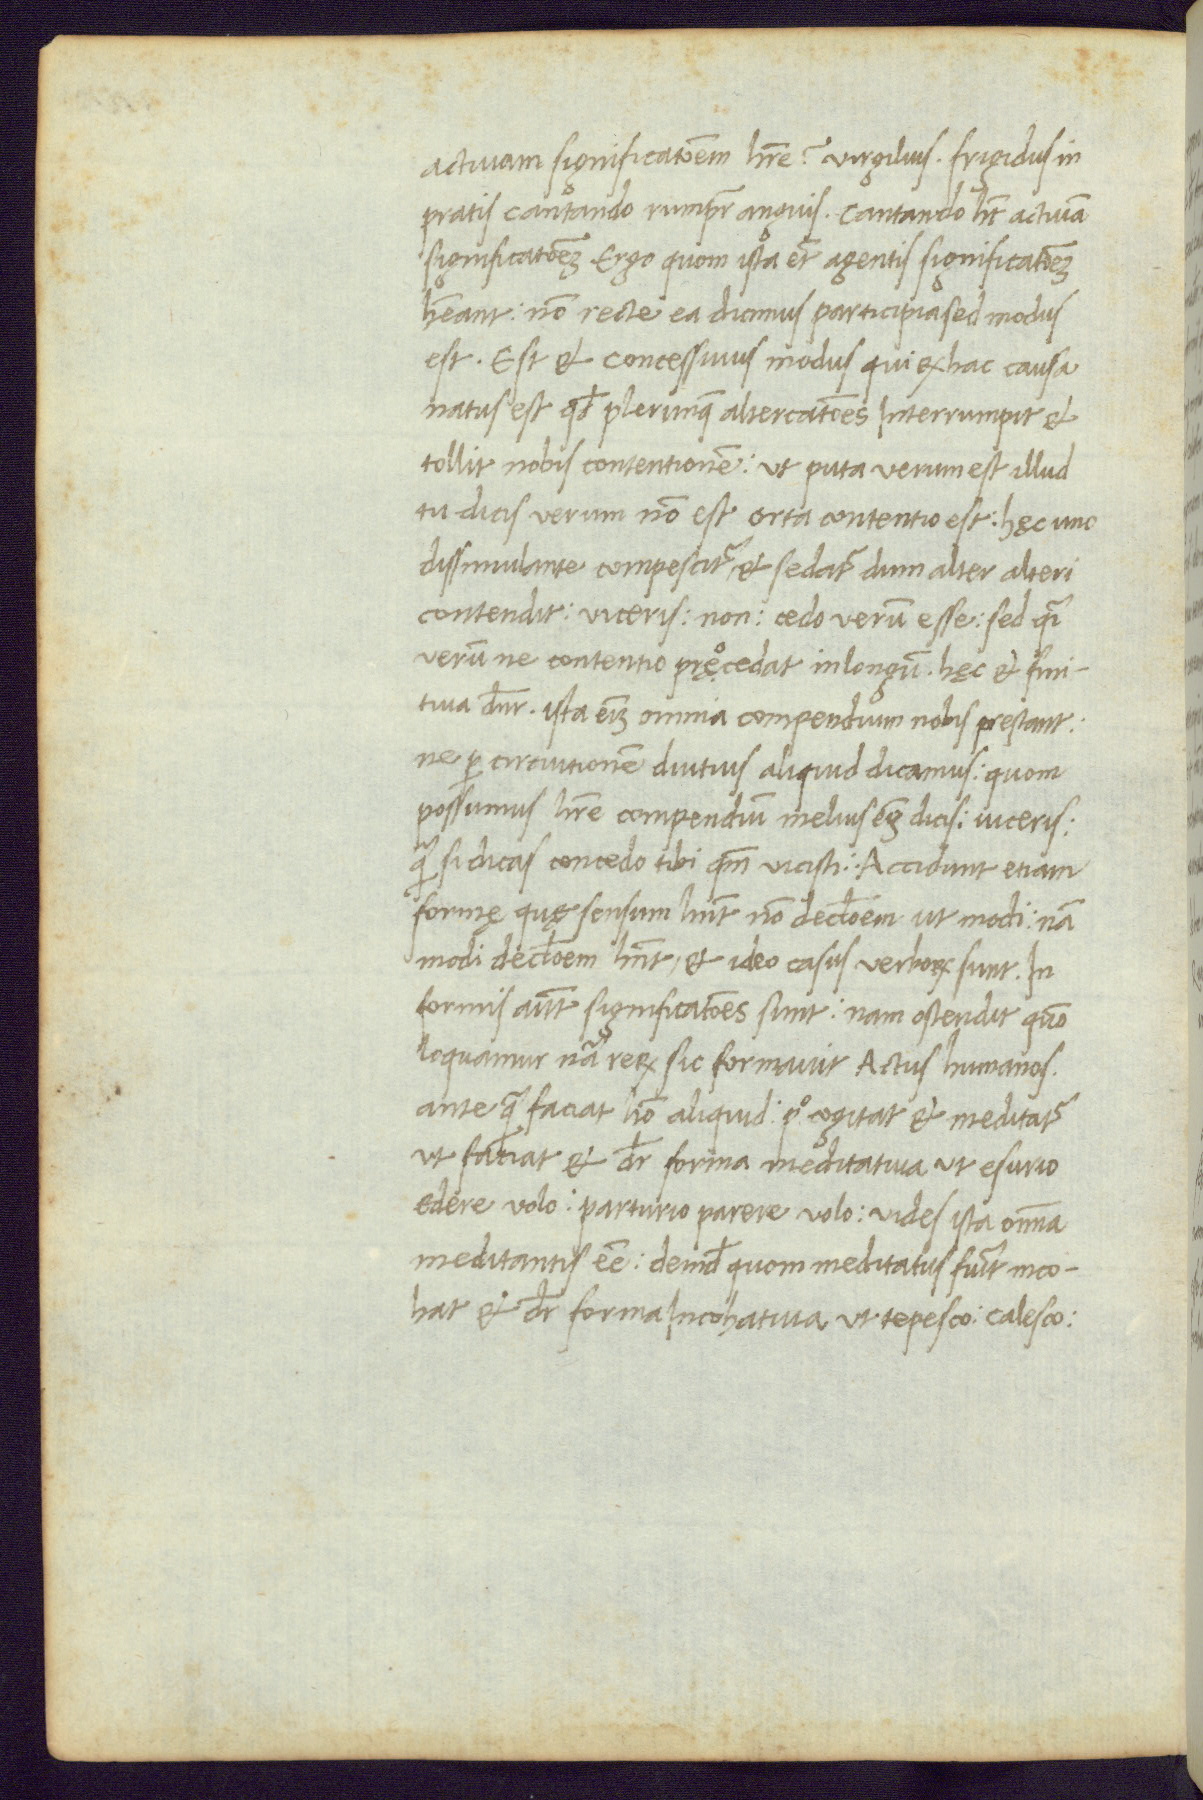 actiuam significatōem hr̄e? virgilius. frigidus in
pratis cantando rumpr̄ anguis. cantando ht̄ actiuā
significatōeʒ Ergo quom ista et̄ agentis significatōeʒ
hēant: nō recte ea dicimus participia sed modus
est. Est & concessiuus modus qui ex hac causa
natus est qd̄ plerunqʒ altercatōes Interrumpit &
tollit nobis contentionē: ut puta verum est illud
tu dicis verum nō est orta contentio est: hęc uno
dissimulante compescit᷑ & sedat᷑ dum alter alteri
contendit: viceris: non: cedo verū esse: sed q̄i
verū ne contentio pręcedat in longū. hęc & fini-
tiua dn̄r. ista eīʒ omnia compendium nobis prestant:
ne ꝑ circuitionē diutius aliquid dicamus: quom
possumus hr̄e compendiū melius eīʒ dicis: viceris:
q̄ si dicas concedo tibi qm̄ vicisti: Accidunt etiam
formę quę sensum hn̄t nō decl̄oem ut modi: nā
modi decl̄oem hn̄t, & ideo casus verboꝝ sunt. In
formis aūt significatōes sunt: nam ostendit quō
loquamur nā reꝝ sic formauit Actus humanos.
ante q̄ faciat hō aliquid: p° cogitat & meditat᷑
ut faciat & dr̄ forma meditatiua ut esurio
edere volo: parturio parere volo: vides ista om̄ia
meditantis eē: deind̄ quom meditatus fuīt inco-
hat & dr̄ forma Incohatiua ut tepesco: calesco: